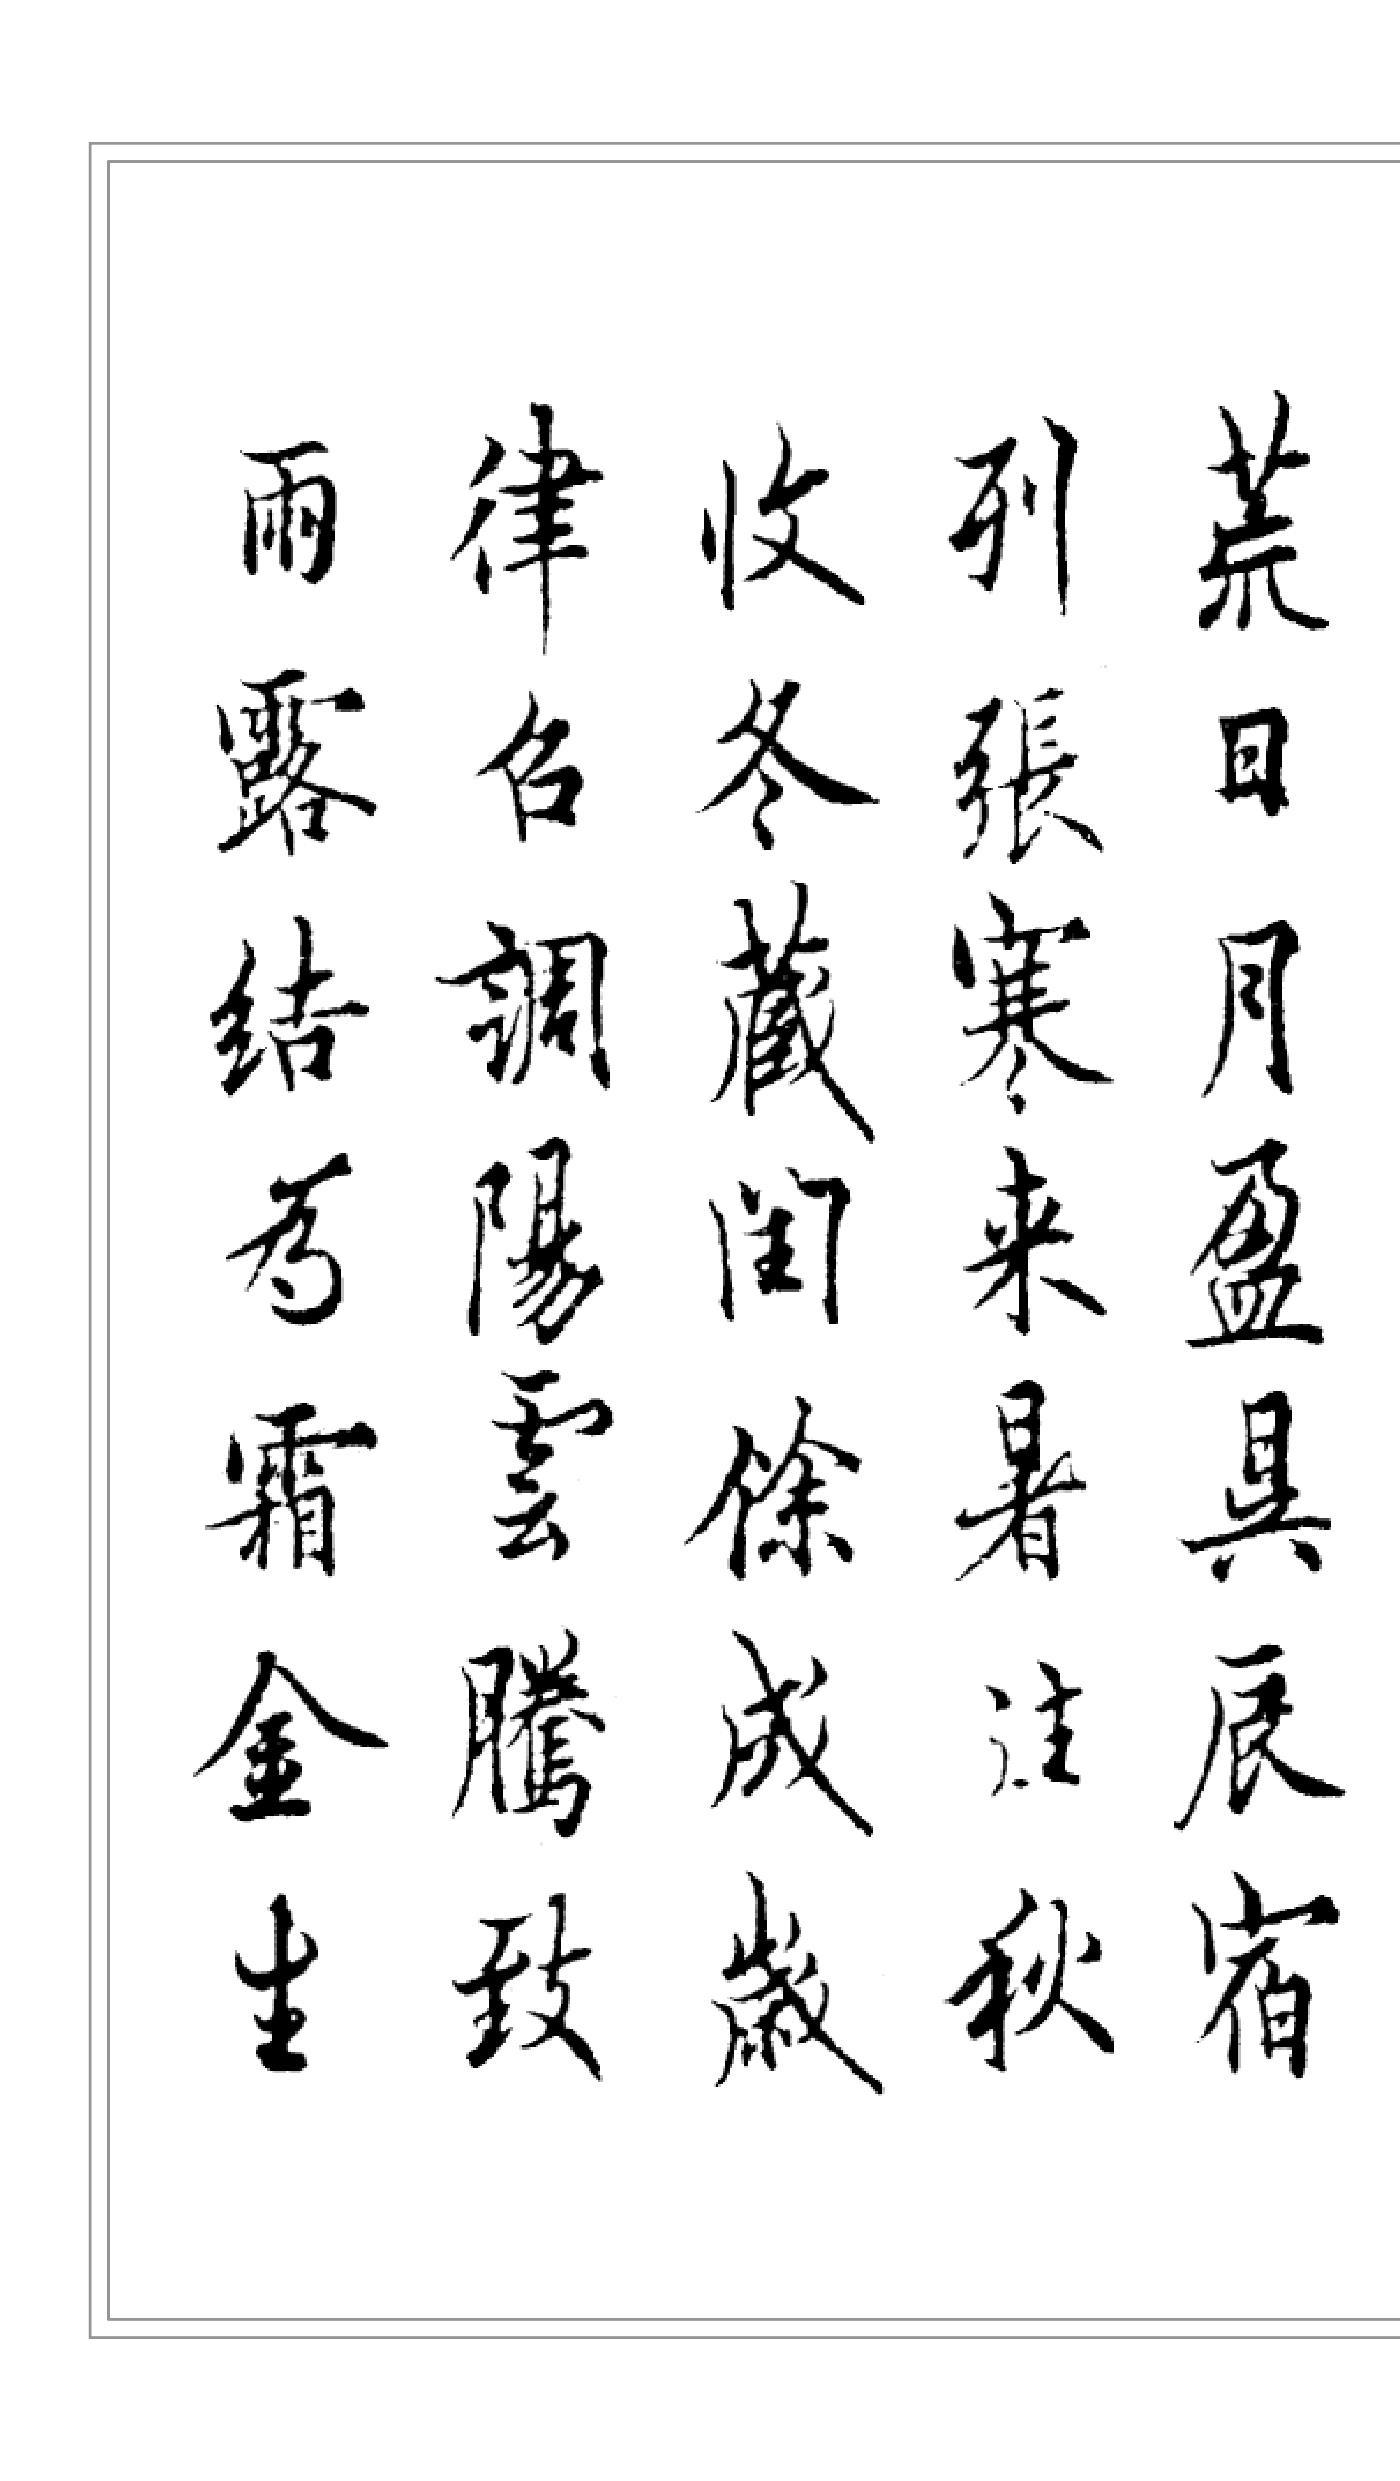 荒日月盈昃辰宿
列張寒来暑往秋
收冬藏閏餘成歲
律召調陽雲騰致
雨露結為霜金生